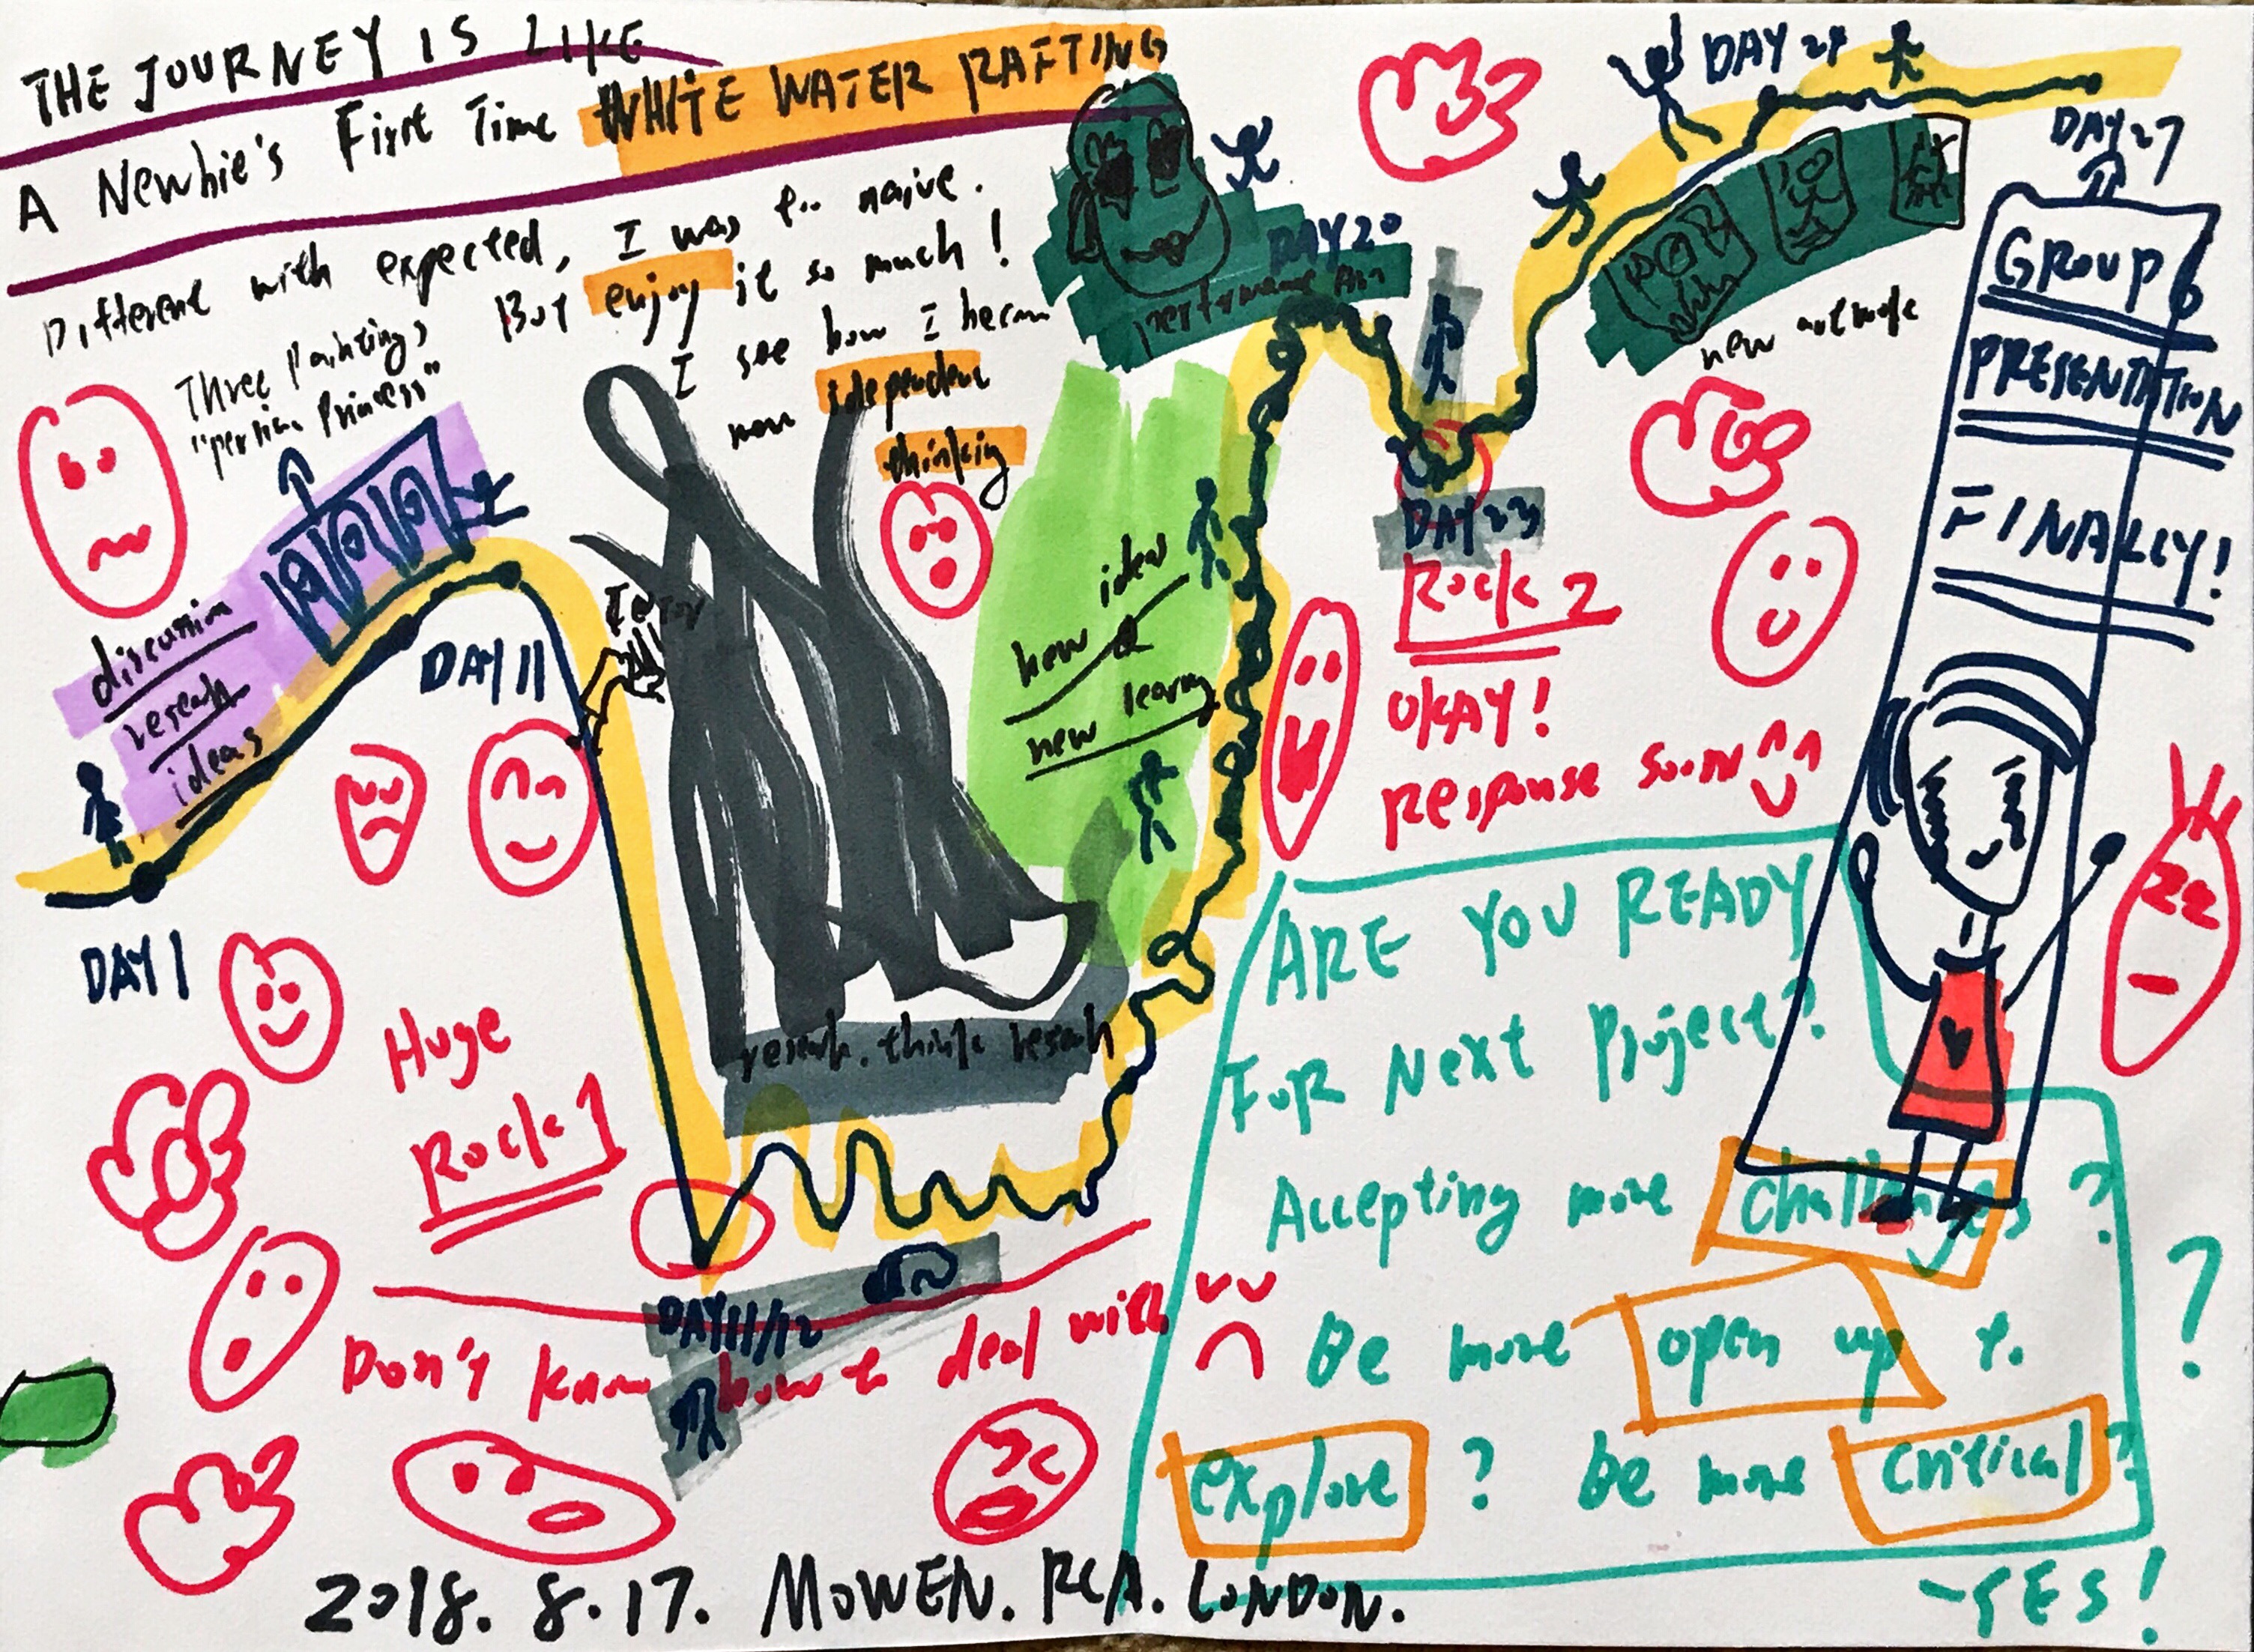 THE JOURNEY IS LIKE
A Newbie's First Time WHITE WATER RAFTING
Different with expected, I was too naive.
But enjoy it so much!
I see how I become
more independent
thinking
Three Paintings
"persian Princess"
discussion
research
ideas
DAY 1
DAY 11
Huge
Rock 1
DAY 11/12
Don't know how to deal with
research. think. research
new ideas
&
new learning
DAY 20
performance
DAY 23
Rock 2
OKAY!
Response soon
DAY 24
new artwork
DAY 27
GROUP
PRESENTATION
FINALLY!
ARE YOU READY
FOR Next Project?
Accepting more challenges?
Be more open up to
explore? Be more critical?
?
-YES!
2018. 8. 17. MOWEN. RCA. LONDON.